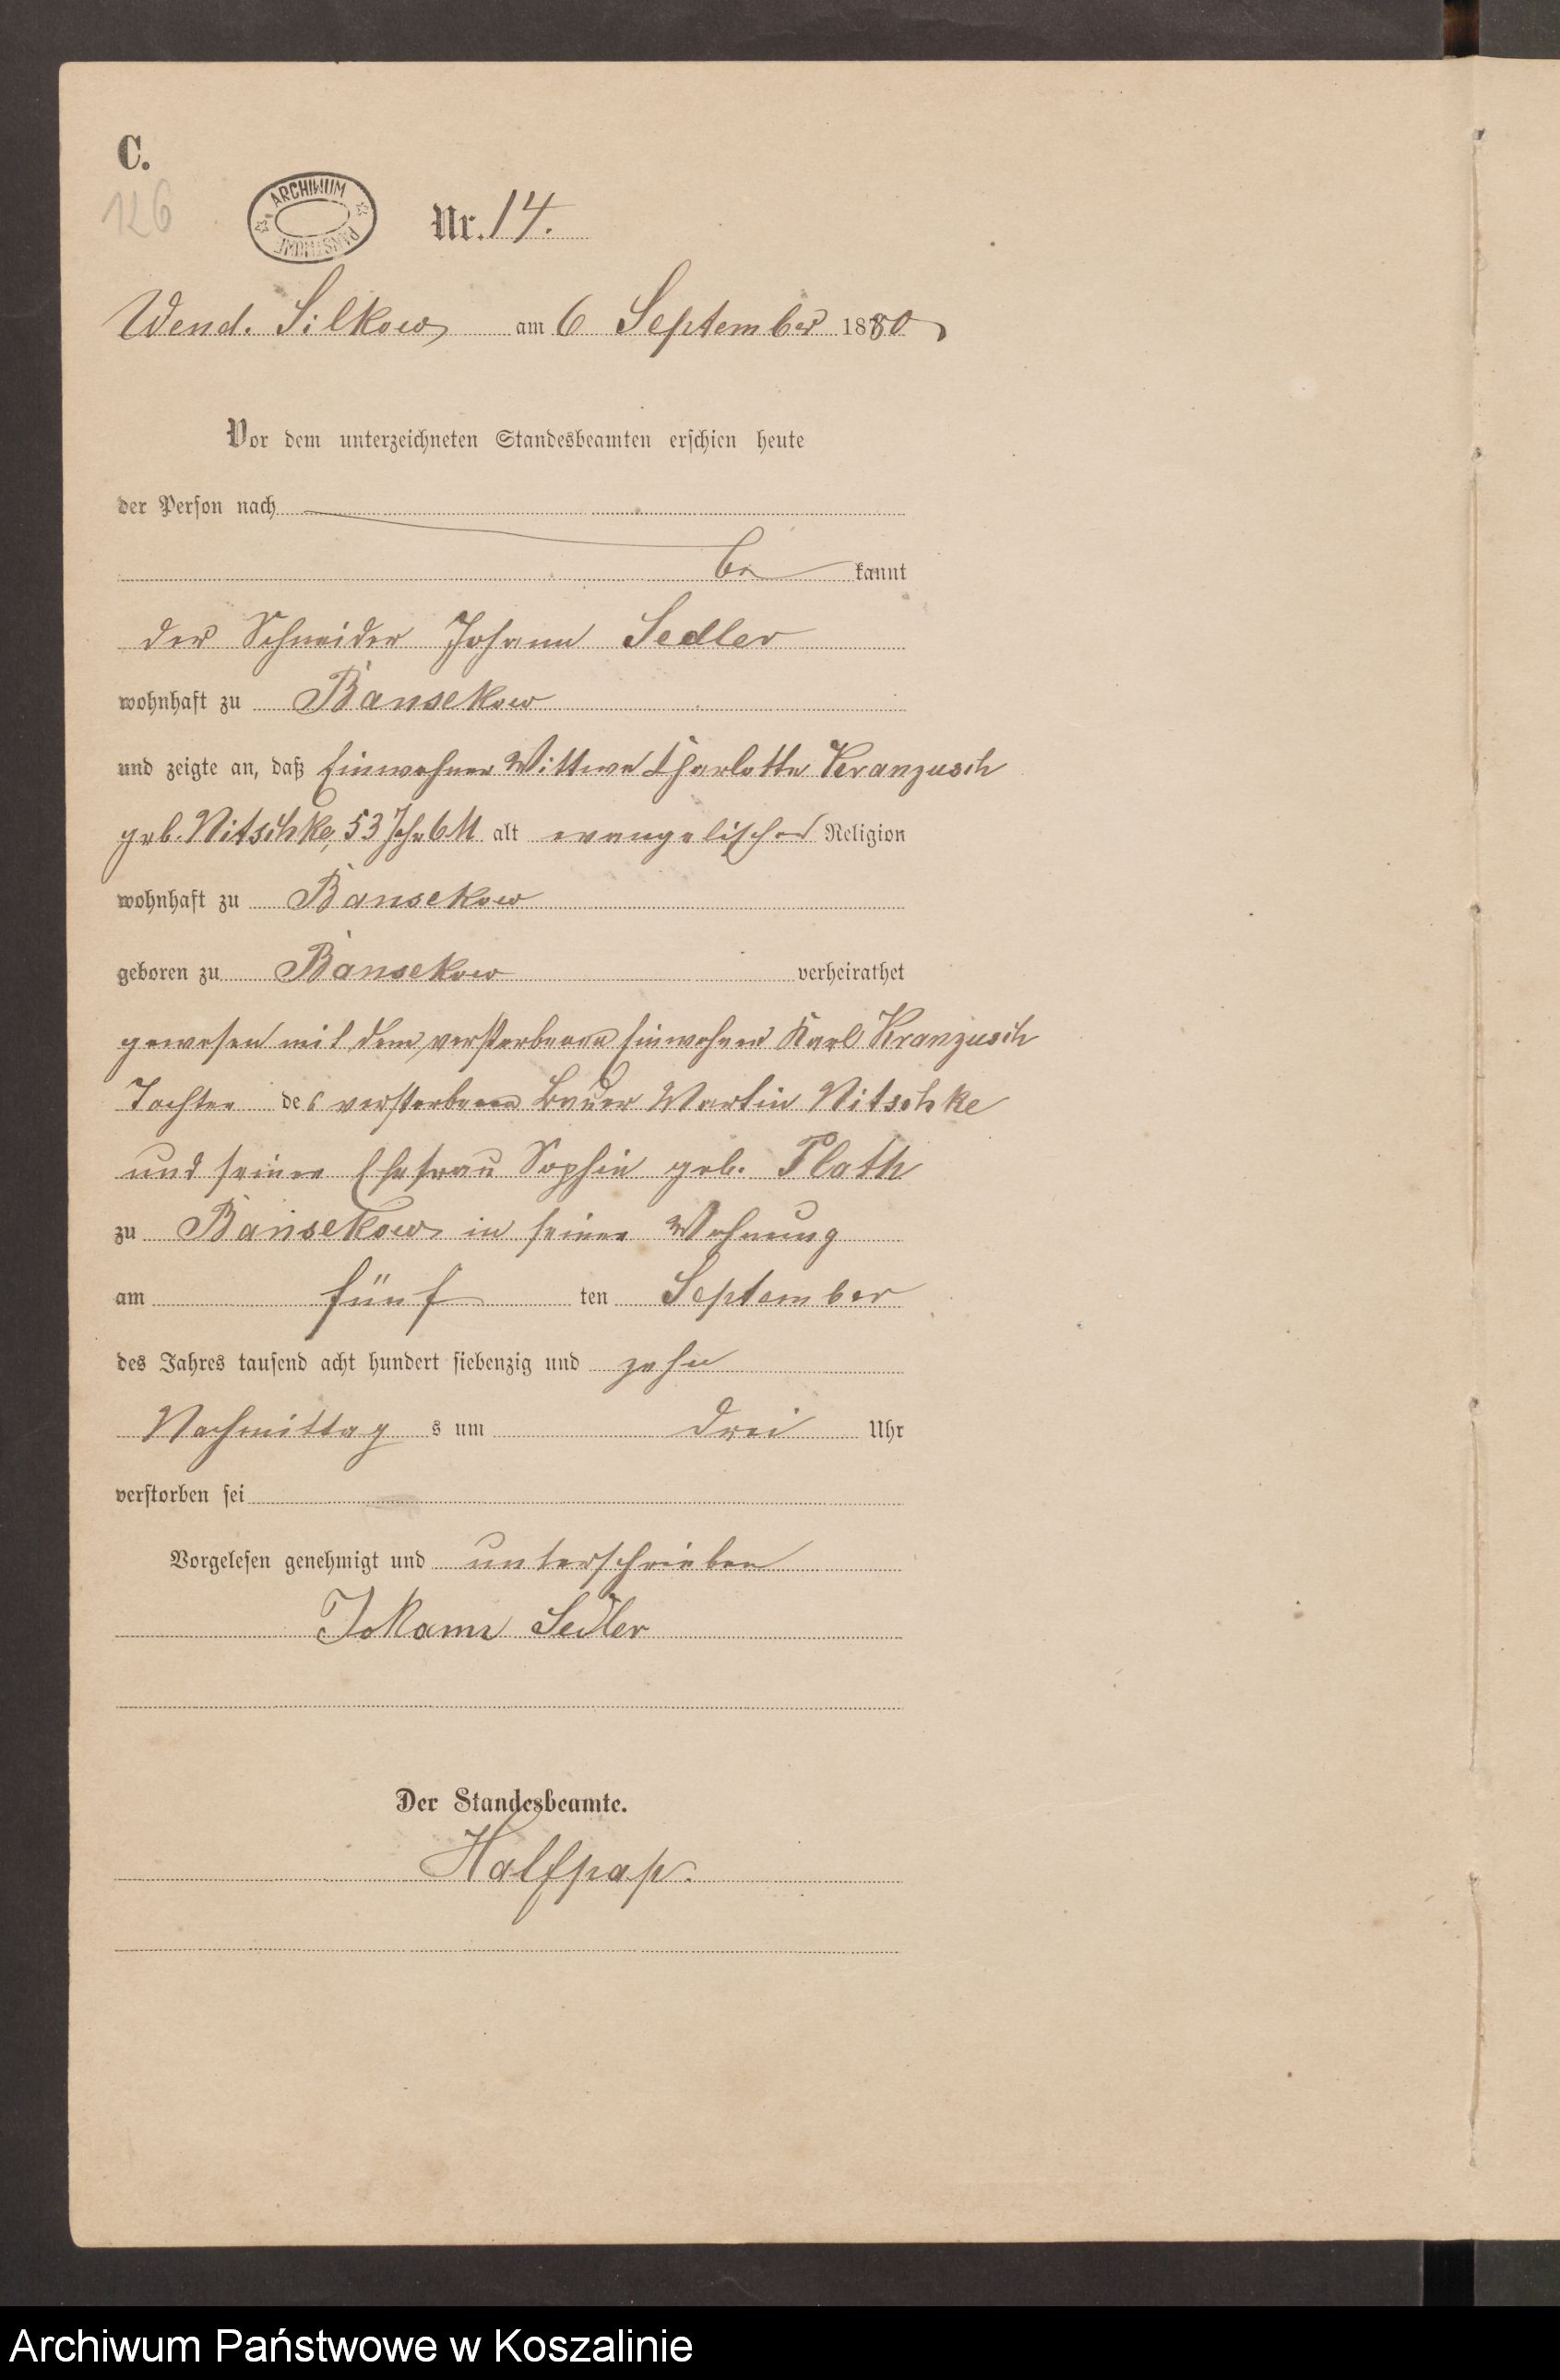 C.
126
ARCHIWUM PAŃSTWOWE
Nr. 14.
Wend. Silkow am 6 September 1880
Vor dem unterzeichneten Standesbeamten erschien heute
der Person nach
be kannt
der Schneider Johann Sedler
wohnhaft zu Bansekow
und zeigte an, daß Einwohner Wittwe Charlotte Kranzusch
geb. Nitschke, 53 Jahr 6 M alt evangelischer Religion
wohnhaft zu Bansekow
geboren zu Bansekow verheirathet
gewesen mit dem verstorbenen Einwohner Karl Kranzusch
Tochter des verstorbenen Bauer Martin Nitschke
und seiner Ehefrau Sophie geb. Plath
zu Bansekow in seiner Wohnung
am fünf ten September
des Jahres tausend acht hundert siebenzig und zehn
Nachmittag s um drei Uhr
verstorben sei
Vorgelesen genehmigt und unterschrieben
Johann Sedler
Der Standesbeamte.
Halfpap.
Archiwum Państwowe w Koszalinie